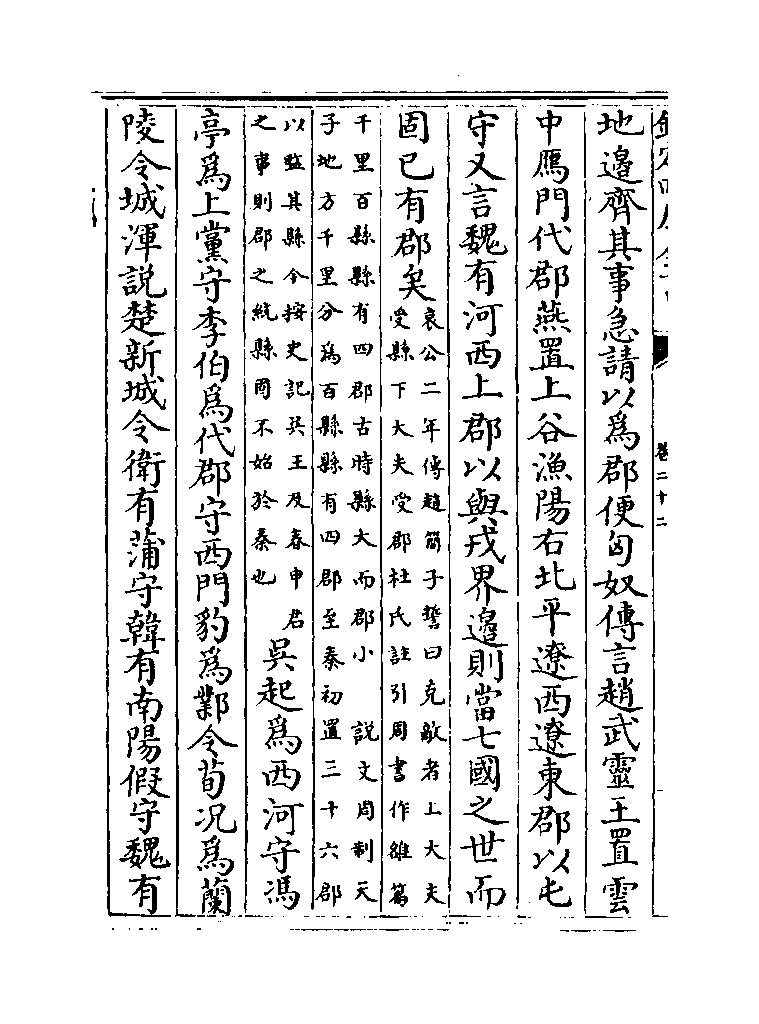 地邉齊其事急請以為郡便匈奴傳言趙武靈王置雲
中鴈門代郡燕置上谷漁陽右北平遼西遼東郡以屯
守又言魏有河西上郡以與戎界邉則當七國之世而
固已有郡矣哀公二年傳趙簡子誓曰克敵者上大夫
受縣下大夫受郡杜氏註引周書作雒篇
千里百縣縣有四郡古時縣大而郡小 說文周制天
子地方千里分為百縣縣有四郡至秦初置三十六郡
以監其縣今按史記吳王及春申君
之事則郡之統縣固不始於秦也
吳起為西河守馮
亭為上黨守李伯為代郡守西門豹為鄴令荀况為蘭
陵令城渾說楚新城令衛有蒲守韓有南陽假守魏有
卷二十二